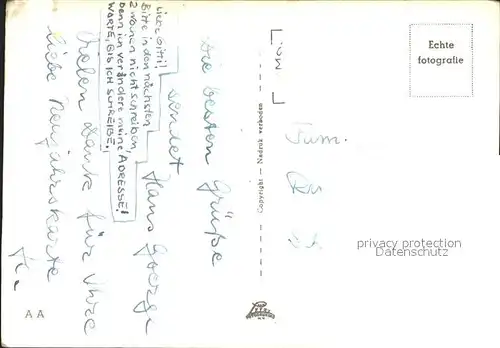 Die besten Grüße
sendet
Hans Georg
Liebe Gitti!
Bitte in den nächsten
2 Wochen nicht schreiben,
denn ich verändere meine ADRESSE!
WARTE, BIS ICH SCHREIBE.
Vielen Dank für Ihre
liebe Neujahrskarte
Copyright — Nachdruck verboten
Echte
fotografie
privacy protection
Datenschutz
A A